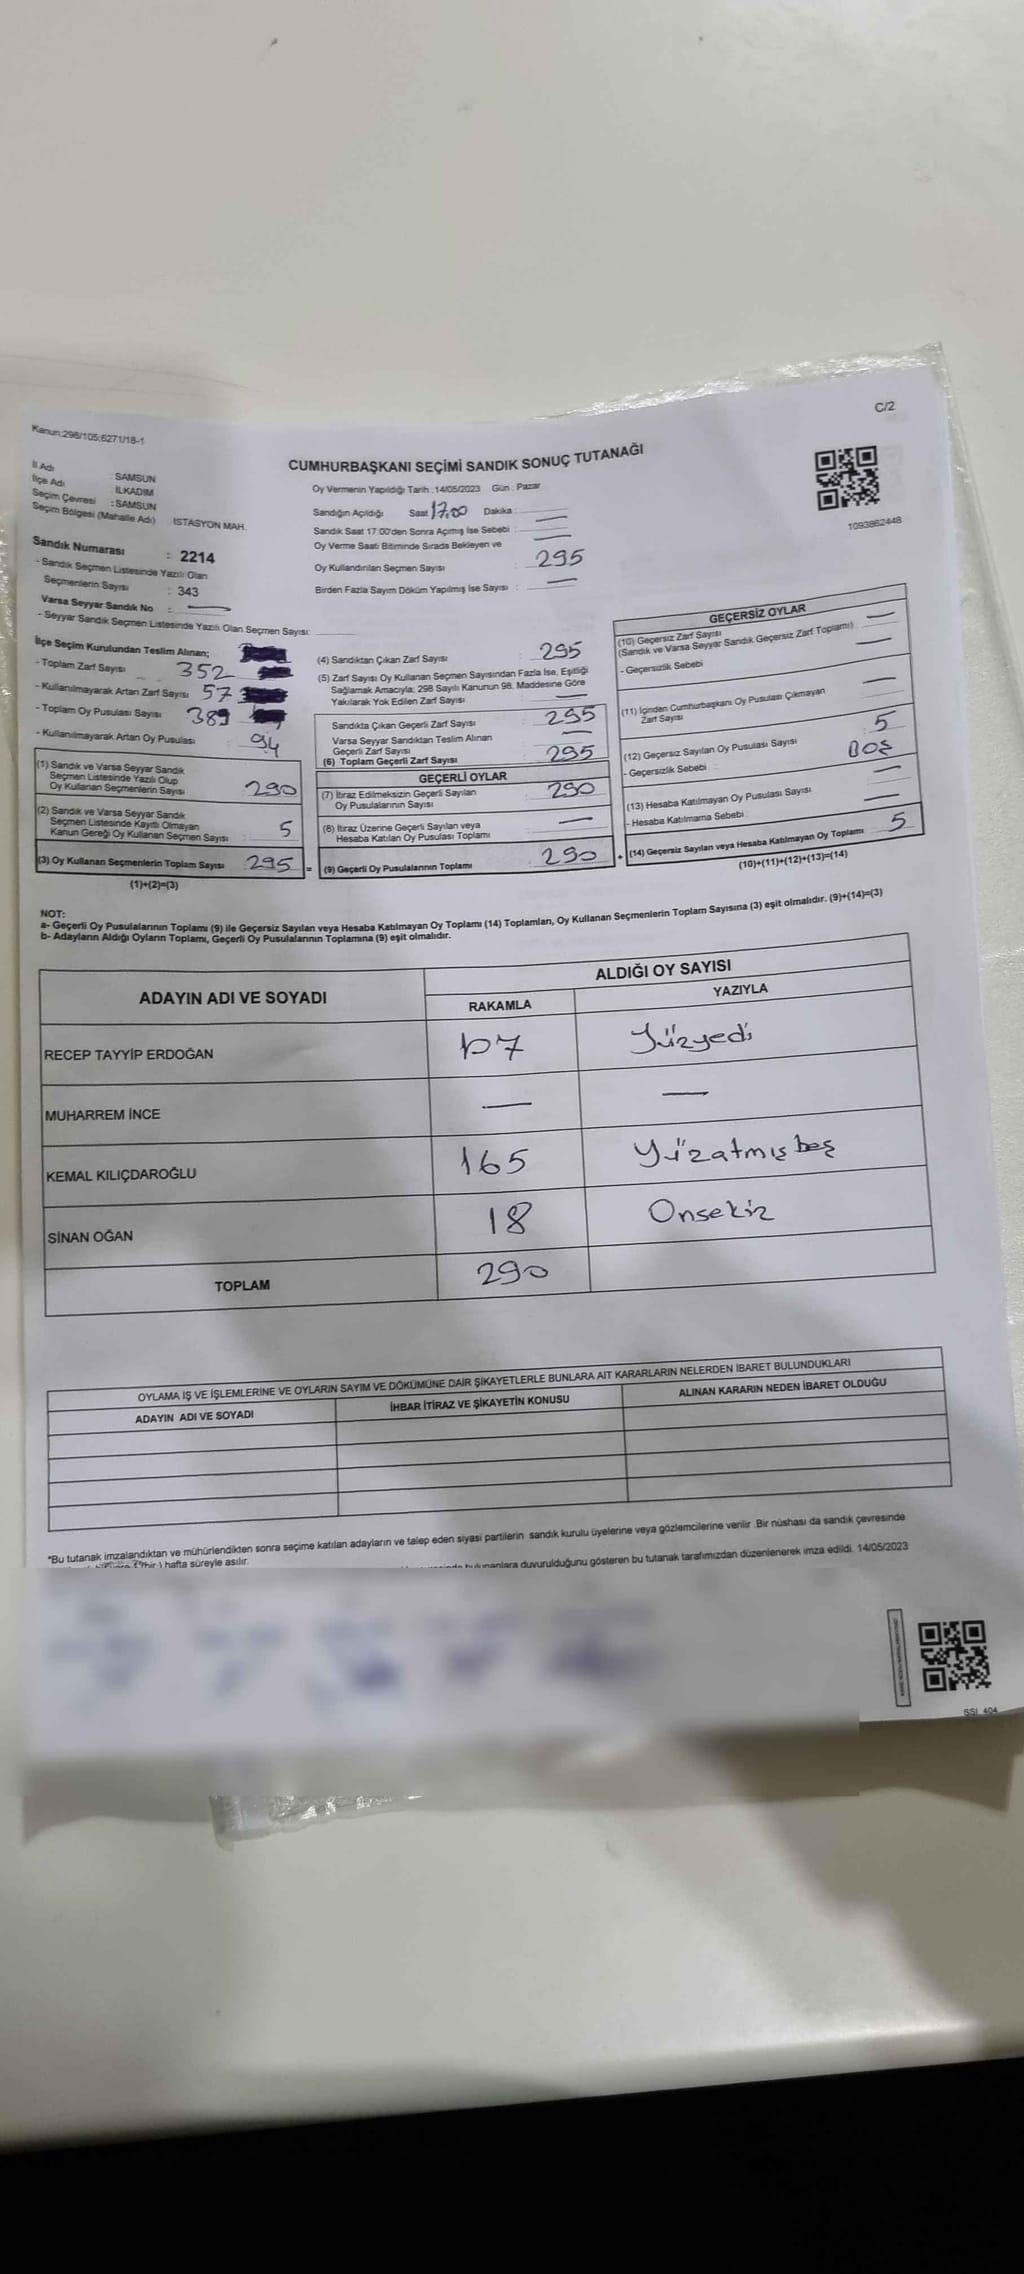 Kanun;298/105;6271/18-1
C/2
CUMHURBAŞKANI SEÇİMİ SANDIK SONUÇ TUTANAĞI
İl Adı : SAMSUN
İlçe Adı : İLKADIM
Seçim Çevresi : SAMSUN
Seçim Bölgesi (Mahalle Adı) : İSTASYON MAH.
Sandık Numarası : 2214
- Sandık Seçmen Listesinde Yazılı Olan
Seçmenlerin Sayısı : 343
Varsa Seyyar Sandık No : —
- Seyyar Sandık Seçmen Listesinde Yazılı Olan Seçmen Sayısı:
Oy Vermenin Yapıldığı Tarih : 14/05/2023 Gün : Pazar
Sandığın Açıldığı Saat 17.00 Dakika : —
Sandık Saat 17.00'den Sonra Açılmış İse Sebebi : —
Oy Verme Saati Bitiminde Sırada Bekleyen ve
Oy Kullandırılan Seçmen Sayısı : 295
Birden Fazla Sayım Döküm Yapılmış İse Sayısı : —
1093862448
İlçe Seçim Kurulundan Teslim Alınan;
- Toplam Zarf Sayısı 352
- Kullanılmayarak Artan Zarf Sayısı 57
- Toplam Oy Pusulası Sayısı 389
- Kullanılmayarak Artan Oy Pusulası : 94
(1) Sandık ve Varsa Seyyar Sandık
Seçmen Listesinde Yazılı Olup
Oy Kullanan Seçmenlerin Sayısı : 290
(2) Sandık ve Varsa Seyyar Sandık
Seçmen Listesinde Kayıtlı Olmayan
Kanun Gereği Oy Kullanan Seçmen Sayısı : 5
(3) Oy Kullanan Seçmenlerin Toplam Sayısı : 295 =
(1)+(2)=(3)
(4) Sandıktan Çıkan Zarf Sayısı : 295
(5) Zarf Sayısı Oy Kullanan Seçmen Sayısından Fazla İse, Eşitliği
Sağlamak Amacıyla; 298 Sayılı Kanunun 98. Maddesine Göre
Yakılarak Yok Edilen Zarf Sayısı : —
Sandıkta Çıkan Geçerli Zarf Sayısı : 295
Varsa Seyyar Sandıktan Teslim Alınan
Geçerli Zarf Sayısı : —
(6) Toplam Geçerli Zarf Sayısı : 295
GEÇERLİ OYLAR
(7) İtiraz Edilmeksizin Geçerli Sayılan
Oy Pusulalarının Sayısı : 290
(8) İtiraz Üzerine Geçerli Sayılan veya
Hesaba Katılan Oy Pusulası Toplamı : —
(9) Geçerli Oy Pusulalarının Toplamı : 290 +
GEÇERSİZ OYLAR
(10) Geçersiz Zarf Sayısı : —
(Sandık ve Varsa Seyyar Sandık Geçersiz Zarf Toplamı)
- Geçersizlik Sebebi : —
(11) İçinden Cumhurbaşkanı Oy Pusulası Çıkmayan
Zarf Sayısı : —
(12) Geçersiz Sayılan Oy Pusulası Sayısı : 5
- Geçersizlik Sebebi : BOŞ
(13) Hesaba Katılmayan Oy Pusulası Sayısı : —
- Hesaba Katılmama Sebebi : —
(14) Geçersiz Sayılan veya Hesaba Katılmayan Oy Toplamı : 5
(10)+(11)+(12)+(13)=(14)
NOT:
a- Geçerli Oy Pusulalarının Toplamı (9) ile Geçersiz Sayılan veya Hesaba Katılmayan Oy Toplamı (14) Toplamları, Oy Kullanan Seçmenlerin Toplam Sayısına (3) eşit olmalıdır. (9)+(14)=(3)
b- Adayların Aldığı Oyların Toplamı, Geçerli Oy Pusulalarının Toplamına (9) eşit olmalıdır.
ADAYIN ADI VE SOYADI
ALDIĞI OY SAYISI
RAKAMLA YAZIYLA
RECEP TAYYİP ERDOĞAN 107 Yüzyedi
MUHARREM İNCE — —
KEMAL KILIÇDAROĞLU 165 Yüzatmışbeş
SİNAN OĞAN 18 Onsekiz
TOPLAM 290
OYLAMA İŞ VE İŞLEMLERİNE VE OYLARIN SAYIM VE DÖKÜMÜNE DAİR ŞİKAYETLERLE BUNLARA AİT KARARLARIN NELERDEN İBARET BULUNDUKLARI
ADAYIN ADI VE SOYADI İHBAR İTİRAZ VE ŞİKAYETİN KONUSU ALINAN KARARIN NEDEN İBARET OLDUĞU
*Bu tutanak imzalandıktan ve mühürlendikten sonra seçime katılan adayların ve talep eden siyasi partilerin sandık kurulu üyelerine veya gözlemcilerine verilir .Bir nüshası da sandık çevresinde
hafta süreyle asılır.
bulunanlara duyurulduğunu gösteren bu tutanak tarafımızdan düzenlenerek imza edildi. 14/05/2023
SSI_404